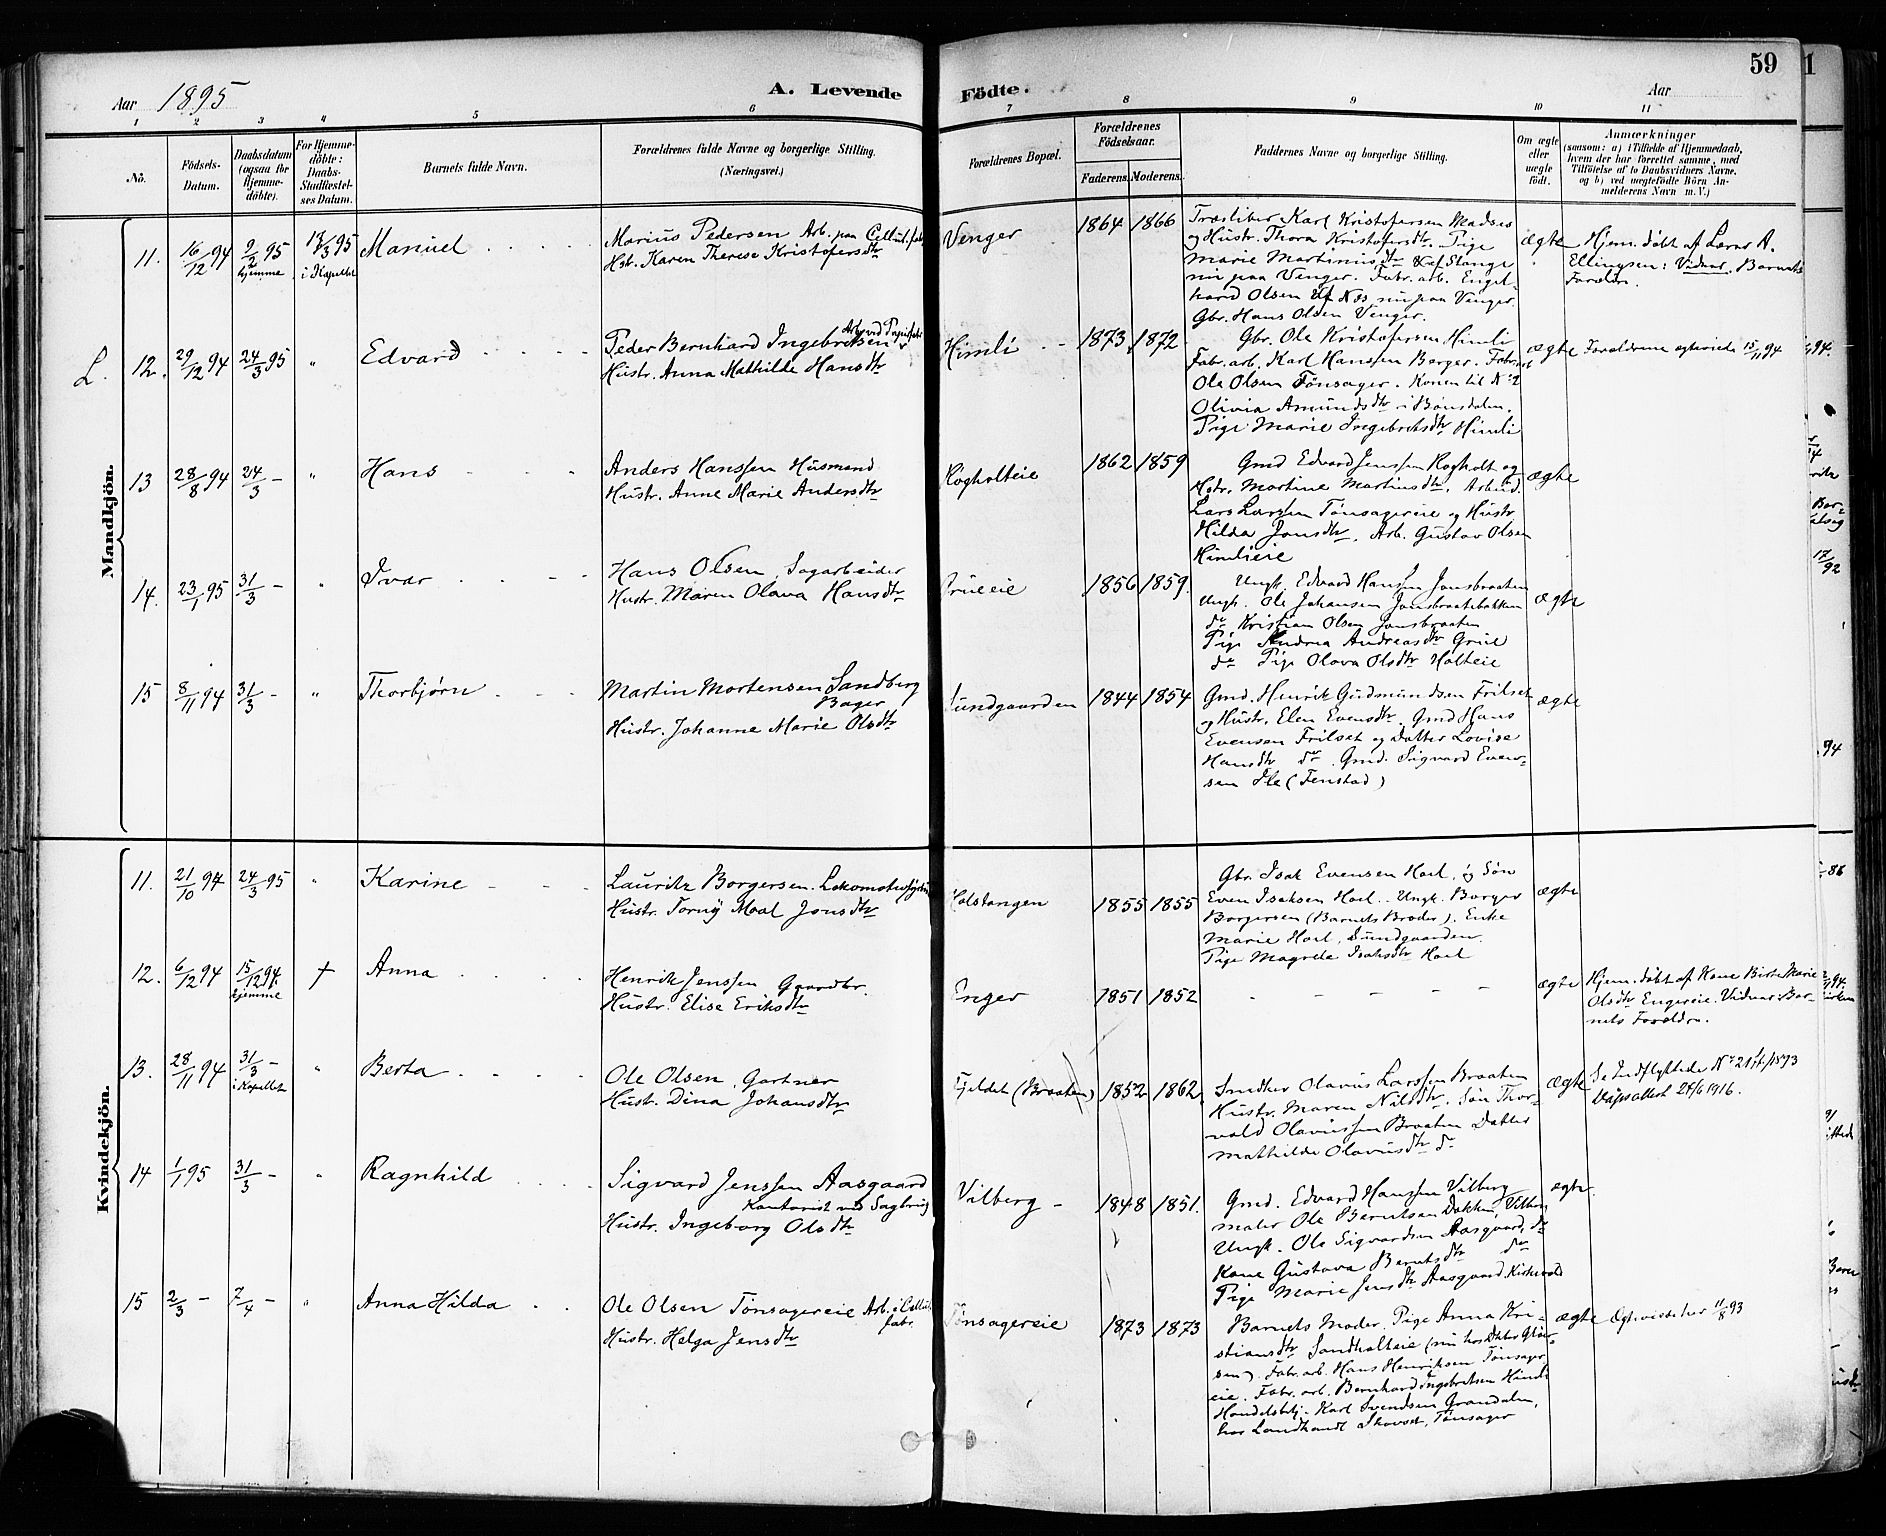 Aar 1895
A. Levende Fødte.
59
Aar
1 2 3 4 5 6 7 8 9 10 11
No.
Fødsels-Datum.
Daabsdatum (ogsaa for Hjemmedøbte).
For Hjemmedøbte: Daabs-Stadfæstelses Datum.
Barnets fulde Navn.
Forældrenes fulde Navne og borgerlige Stilling. (Næringsvei.)
Forældrenes Bopæl.
Forældrenes Fødselsaar.
Faderens. Moderens.
Faddernes Navne og borgerlige Stilling.
Om ægte eller uægte født.
Anmærkninger
(saasom: a) i Tilfælde af Hjemmedaab, hvem der har forrettet samme, med Tilføielse af to Daabsvidners Navne, og b) ved uægtefødte Børn Anmelderens Navn m. V.)
Mandkjön.
11. 16/12 94 9/2 95 hjemme 17/3 95 i Kapellet Manuel
Marius Pedersen Arb. paa Cellul.fab.
Hst. Karen Therese Kristofersdtr
Venger 1864 1866
Træsliber Karl Kristofersen Madses
og Hustr. Thora Kristofersdtr. Pige
Marie Martiniusdtr af Stange
nu paa Venger. Fabr. arb. Engel-
hard Olsen af Næs nu paa Venger.
Gbr. Hans Olsen Venger.
ægte
Hjem.døbt af Lærer A.
Ellingsen: Vidner. Barnets
Forældre.
L. 12. 29/12 94 24/3 95 " Edvard
Peder Bernhard Ingebretsen Arb. ved Papirfabr
Hustr. Anna Mathilde Hansdtr
Himli 1873 1872
Gbr. Ole Kristofersen Himli
Fabr. arb. Karl Hanssen Borger. Fabr. arb
Ole Olsen Tønsager. Konen til No 2
Olivia Amundsdtr i Bønsdalen.
Pige Marie Ingebretsdtr Himli
ægte
Forældrene egteviede 15/11 94
13 28/8 94 24/3 - " Hans
Anders Hanssen Husmand
Hustr. Anne Marie Andersdtr
Rogholteie 1862 1859
Gmd Edvard Jenssen Rogholt og
Hstr. Martine Martinsdtr. Arbeid.
Lars Larssen Tønsagereie og Hustr
Hilda Jonsdtr, Arb. Gustav Olsen
Himlieie
ægte
14. 23/1 95 31/3 - " Ivar
Hans Olsen, Sagarbeider
Hustr. Maren Olava Hansdtr
Grueeie 1856 1859.
Ungk. Edvard Hansen Jonsbraaten
Ungk. Ole Johansen Jonsbraatebakken
do Kristian Olsen Jonsbraaten
Pige Andrea Andreasdtr Grue
do Pige Olava Olsdtr Holteie
ægte
15 8/11 94 31/3 - " Thorbjørn
Martin Mortensen Sandberg
Bager
Hustr. Johanne Marie Olsdtr
Sundgaarden 1844 1854
Gmd. Henrik Gudmundsen Frilset
og Hustr. Elen Evensdtr. Gmd Hans
Evensen Frilset og Datter Lovise
Hansdtr do. Gmd. Sigvard Even-
sen Ile (Fenstad)
ægte
Kvindekjön.
11. 21/10 94 24/3 95 " Karine
Lauritz Borgersen. Lokomotivfyrbø
Hustr. Torny Moal Jonsdtr
Holstangen 1855 1855
Gbr. Isak Evensen Hoel, og Søn
Even Isaksen Hoel. Ungk. Borger
Borgersen (Barnets Broder). Enke
Marie Hoel, Sundgaarden.
Pige Magrete Isaksdtr Hoel
ægte
12. 6/12 94 15/12 94. hjemme † Anna
Henrik Jenssen Gaardbr.
Hustr. Elise Eriksdtr
Enger 1851 1852
- - - - -
ægte
Hjem.døbt af Kone Birte Marie
Olsdtr Engereie. Vidner: Bar-
nets Forældre.
13. 28/11 94 31/3 - i Kapellet " Berta
Ole Olsen, Gartner
Hustr. Dina Johansdtr
Fjeldet (Braaten) 1852 1862
Snedker Olavus Larssen Braaten
Hustr. Maren Nilsdtr. Søn Thor-
vald Olavussen Braaten Datter
Mathilde Olavusdtr do
ægte
Se Indflyttede No 21 1893
Daapsattest 24/6 1916.
14 1/1 95 31/3 - " Ragnhild
Sigvard Jenssen Aasgaard
Kontorist ved Sagbrug
Hustr. Ingeborg Olsdtr
Vilberg 1848 1851.
Gmd. Edvard Hanssen Vilberg
maler Ole Berntsen Bakken, Vilberg
Ungk. Ole Sigvardsen Aasgaard, do
Kone Gustava Berntsdtr do
Pige Marie Jensdtr Aasgaard
ægte
15 2/3 - 7/4 - " Anna Hilda
Ole Olsen Tønsagereie Arb. i Cellul.
fabr.
Hustr. Helga Jensdtr
Tønsagereie 1873 1873
Barnets Moder. Pige Anna Kri-
stiansdtr Sandholteie (nu hos Doktor
sen). Fabr. arb. Hans Henriksen Tønsager
eie. Fabr. arb. Bernhard Ingebretsen Himli
Handelsbtj. Karl Svendsen Grandalen,
hos Landhandl. Skovset, Tønsager
ægte
Egteviedes her 11/8 93